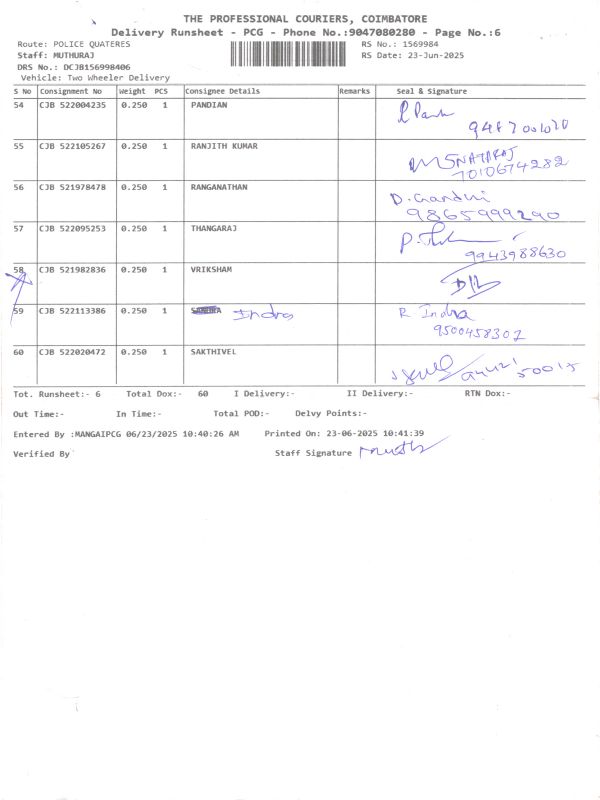 THE PROFESSIONAL COURIERS, COIMBATORE
Delivery Runsheet - PCG - Phone No.:9047080280 - Page No.:6
Route: POLICE QUATERES RS No.: 1569984
Staff: MUTHURAJ RS Date: 23-Jun-2025
DRS No.: DCJB156998406
Vehicle: Two Wheeler Delivery
S No Consignment No Weight PCS Consignee Details Remarks Seal & Signature
54 CJB 522004235 0.250 1 PANDIAN
55 CJB 522105267 0.250 1 RANJITH KUMAR
NATARAJ
7010674282
56 CJB 521978478 0.250 1 RANGANATHAN
D. Gandhi
9865999290
57 CJB 522095253 0.250 1 THANGARAJ
9943988630
58 CJB 521982836 0.250 1 VRIKSHAM
59 CJB 522113386 0.250 1 Indra R Indra
9500458302
60 CJB 522020472 0.250 1 SAKTHIVEL
Tot. Runsheet:- 6 Total Dox:- 60 I Delivery:- II Delivery:- RTN Dox:-
Out Time:- In Time:- Total POD:- Delvy Points:-
Entered By :MANGAIPCG 06/23/2025 10:40:26 AM Printed On: 23-06-2025 10:41:39
Verified By Staff Signature